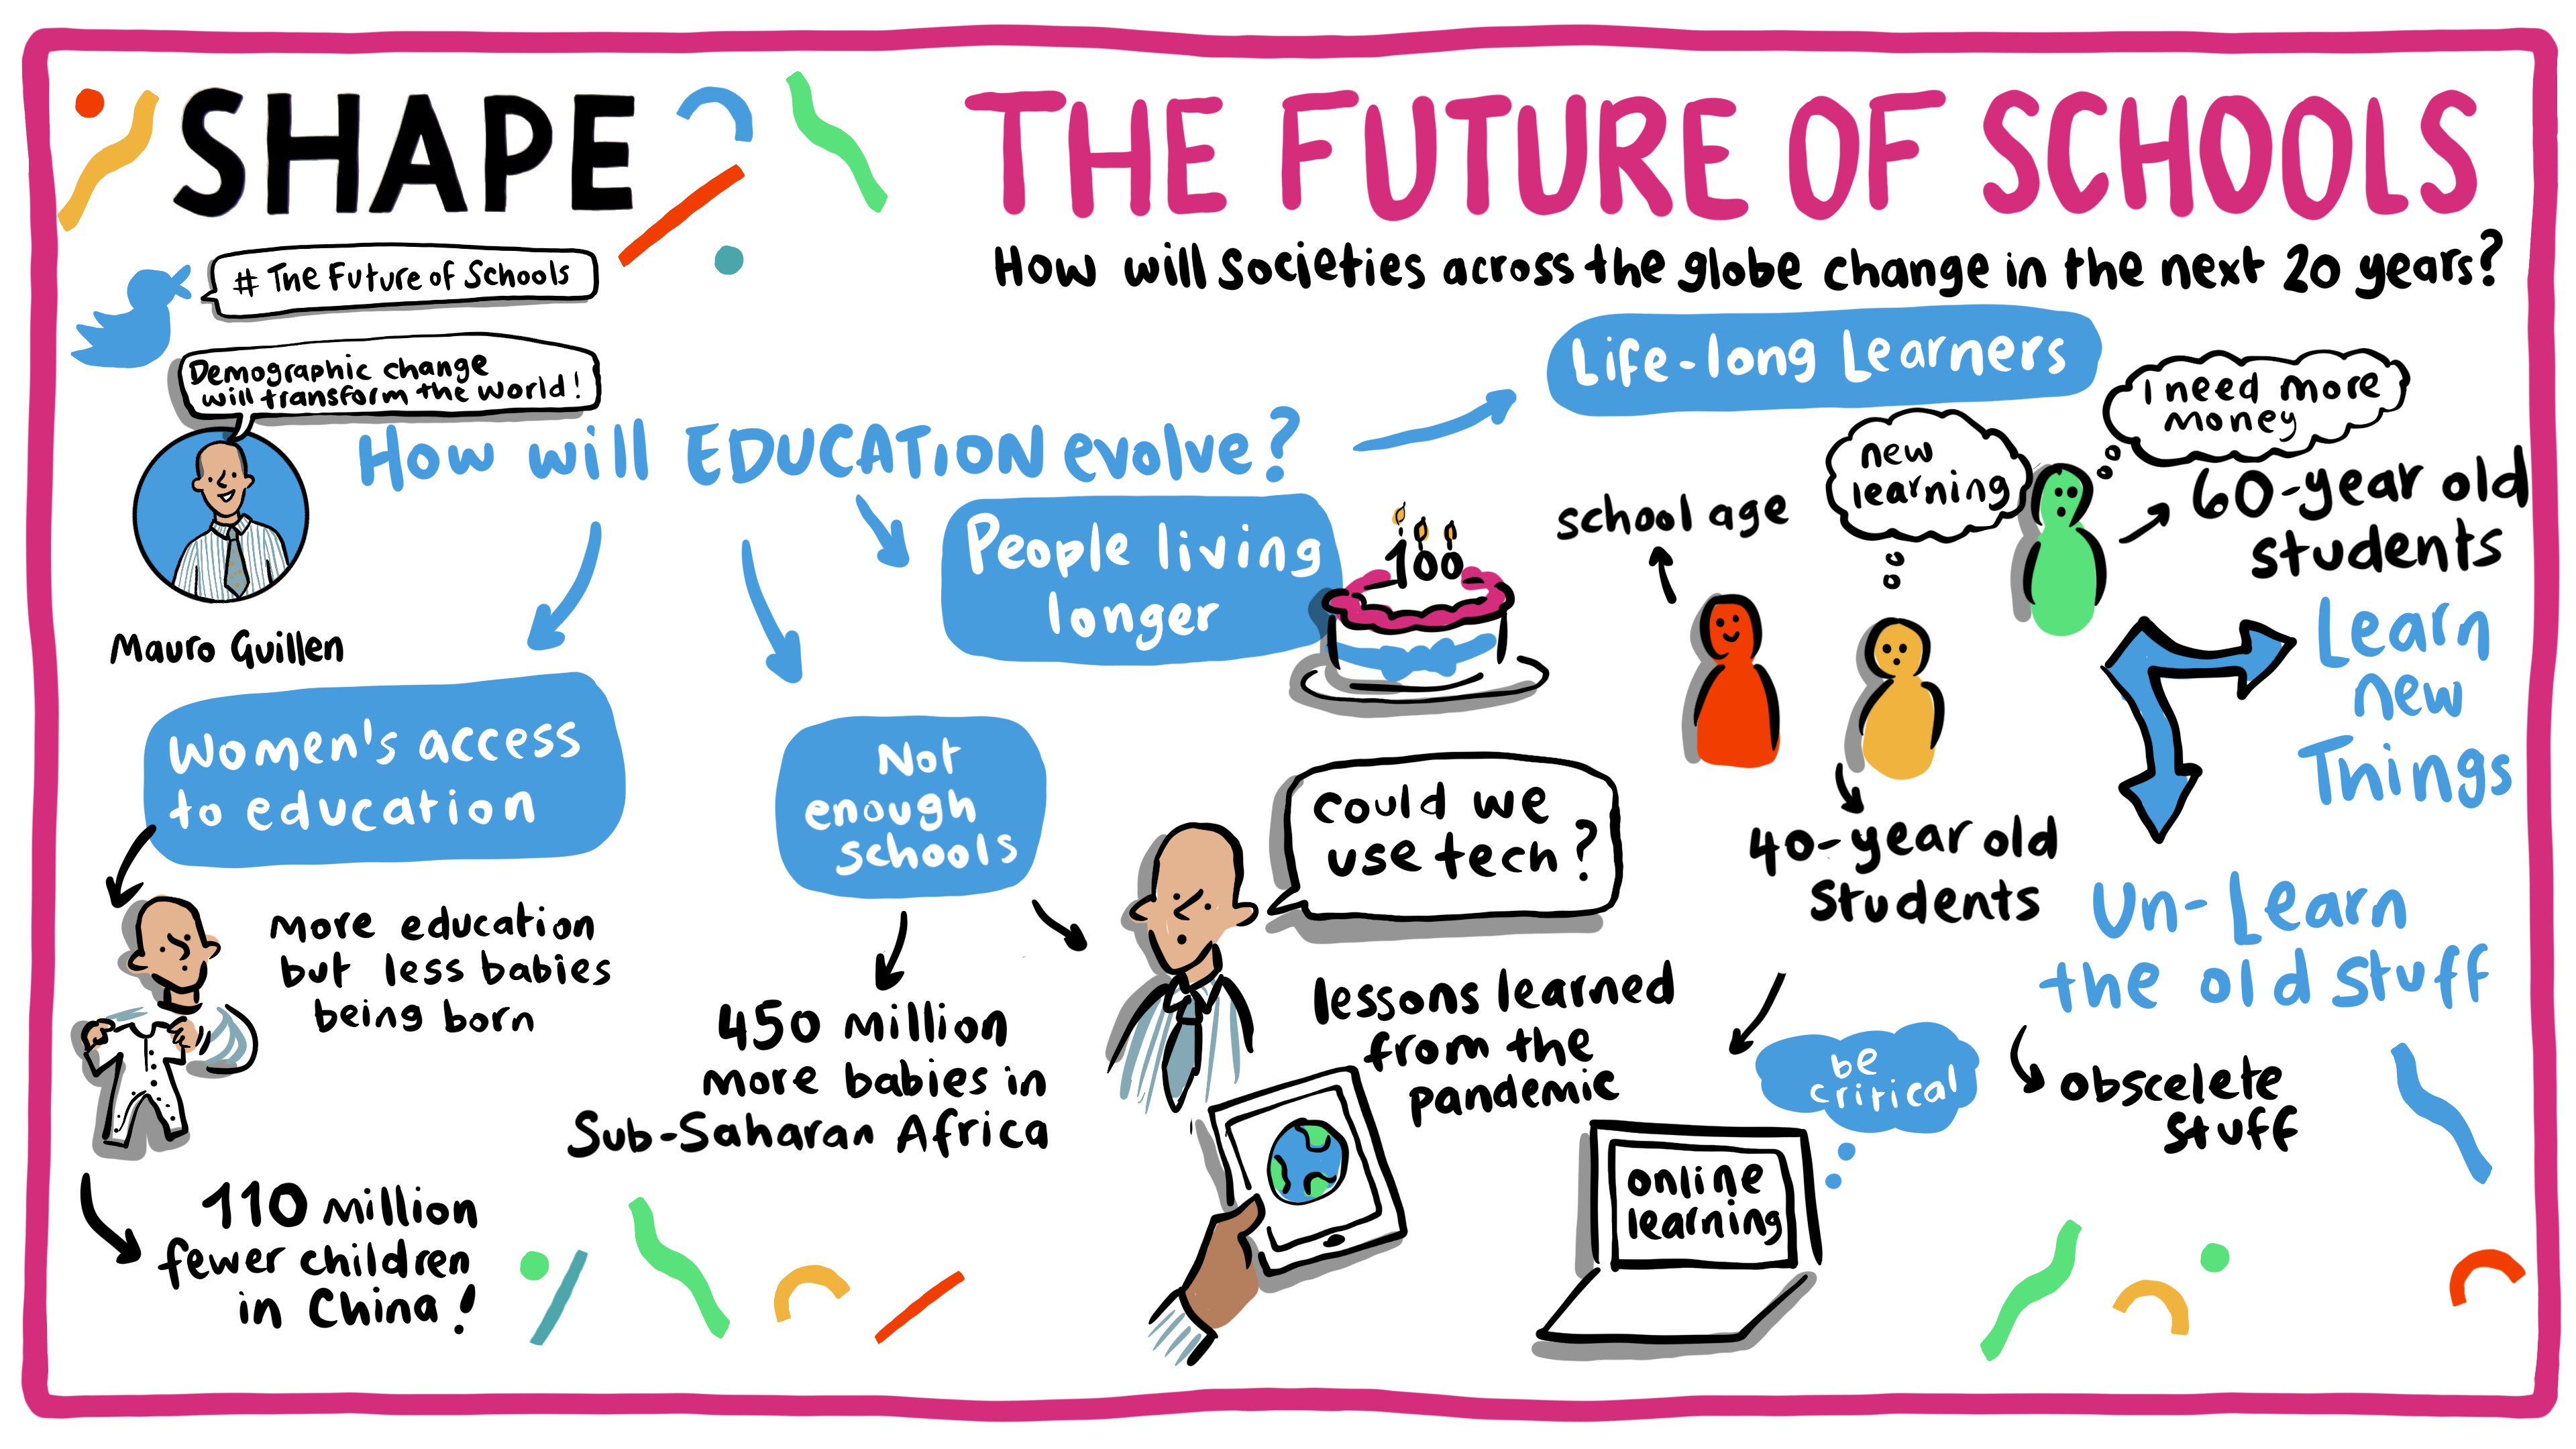 SHAPE
THE FUTURE OF SCHOOLS
How will societies across the globe change in the next 20 years?
# The Future of Schools
Demographic change
will transform the world!
Mauro Guillen
How will EDUCATION evolve?
Women's access
to education
more education
but less babies
being born
110 million
fewer children
in China!
Not
enough
schools
450 million
more babies in
Sub-Saharan Africa
could we
use tech?
lessons learned
from the
pandemic
online
learning
be
critical
People living
longer
100
Life-long Learners
school age
new
learning
40-year old
Students
I need more
money
60-year old
students
Learn
new
Things
Un-Learn
the old stuff
obscelete
stuff